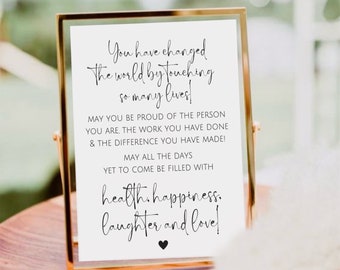 You have changed
the world by touching
so many lives!
MAY YOU BE PROUD OF THE PERSON
YOU ARE, THE WORK YOU HAVE DONE
& THE DIFFERENCE YOU HAVE MADE!
MAY ALL THE DAYS
YET TO COME BE FILLED WITH
health, happiness,
laughter and love!